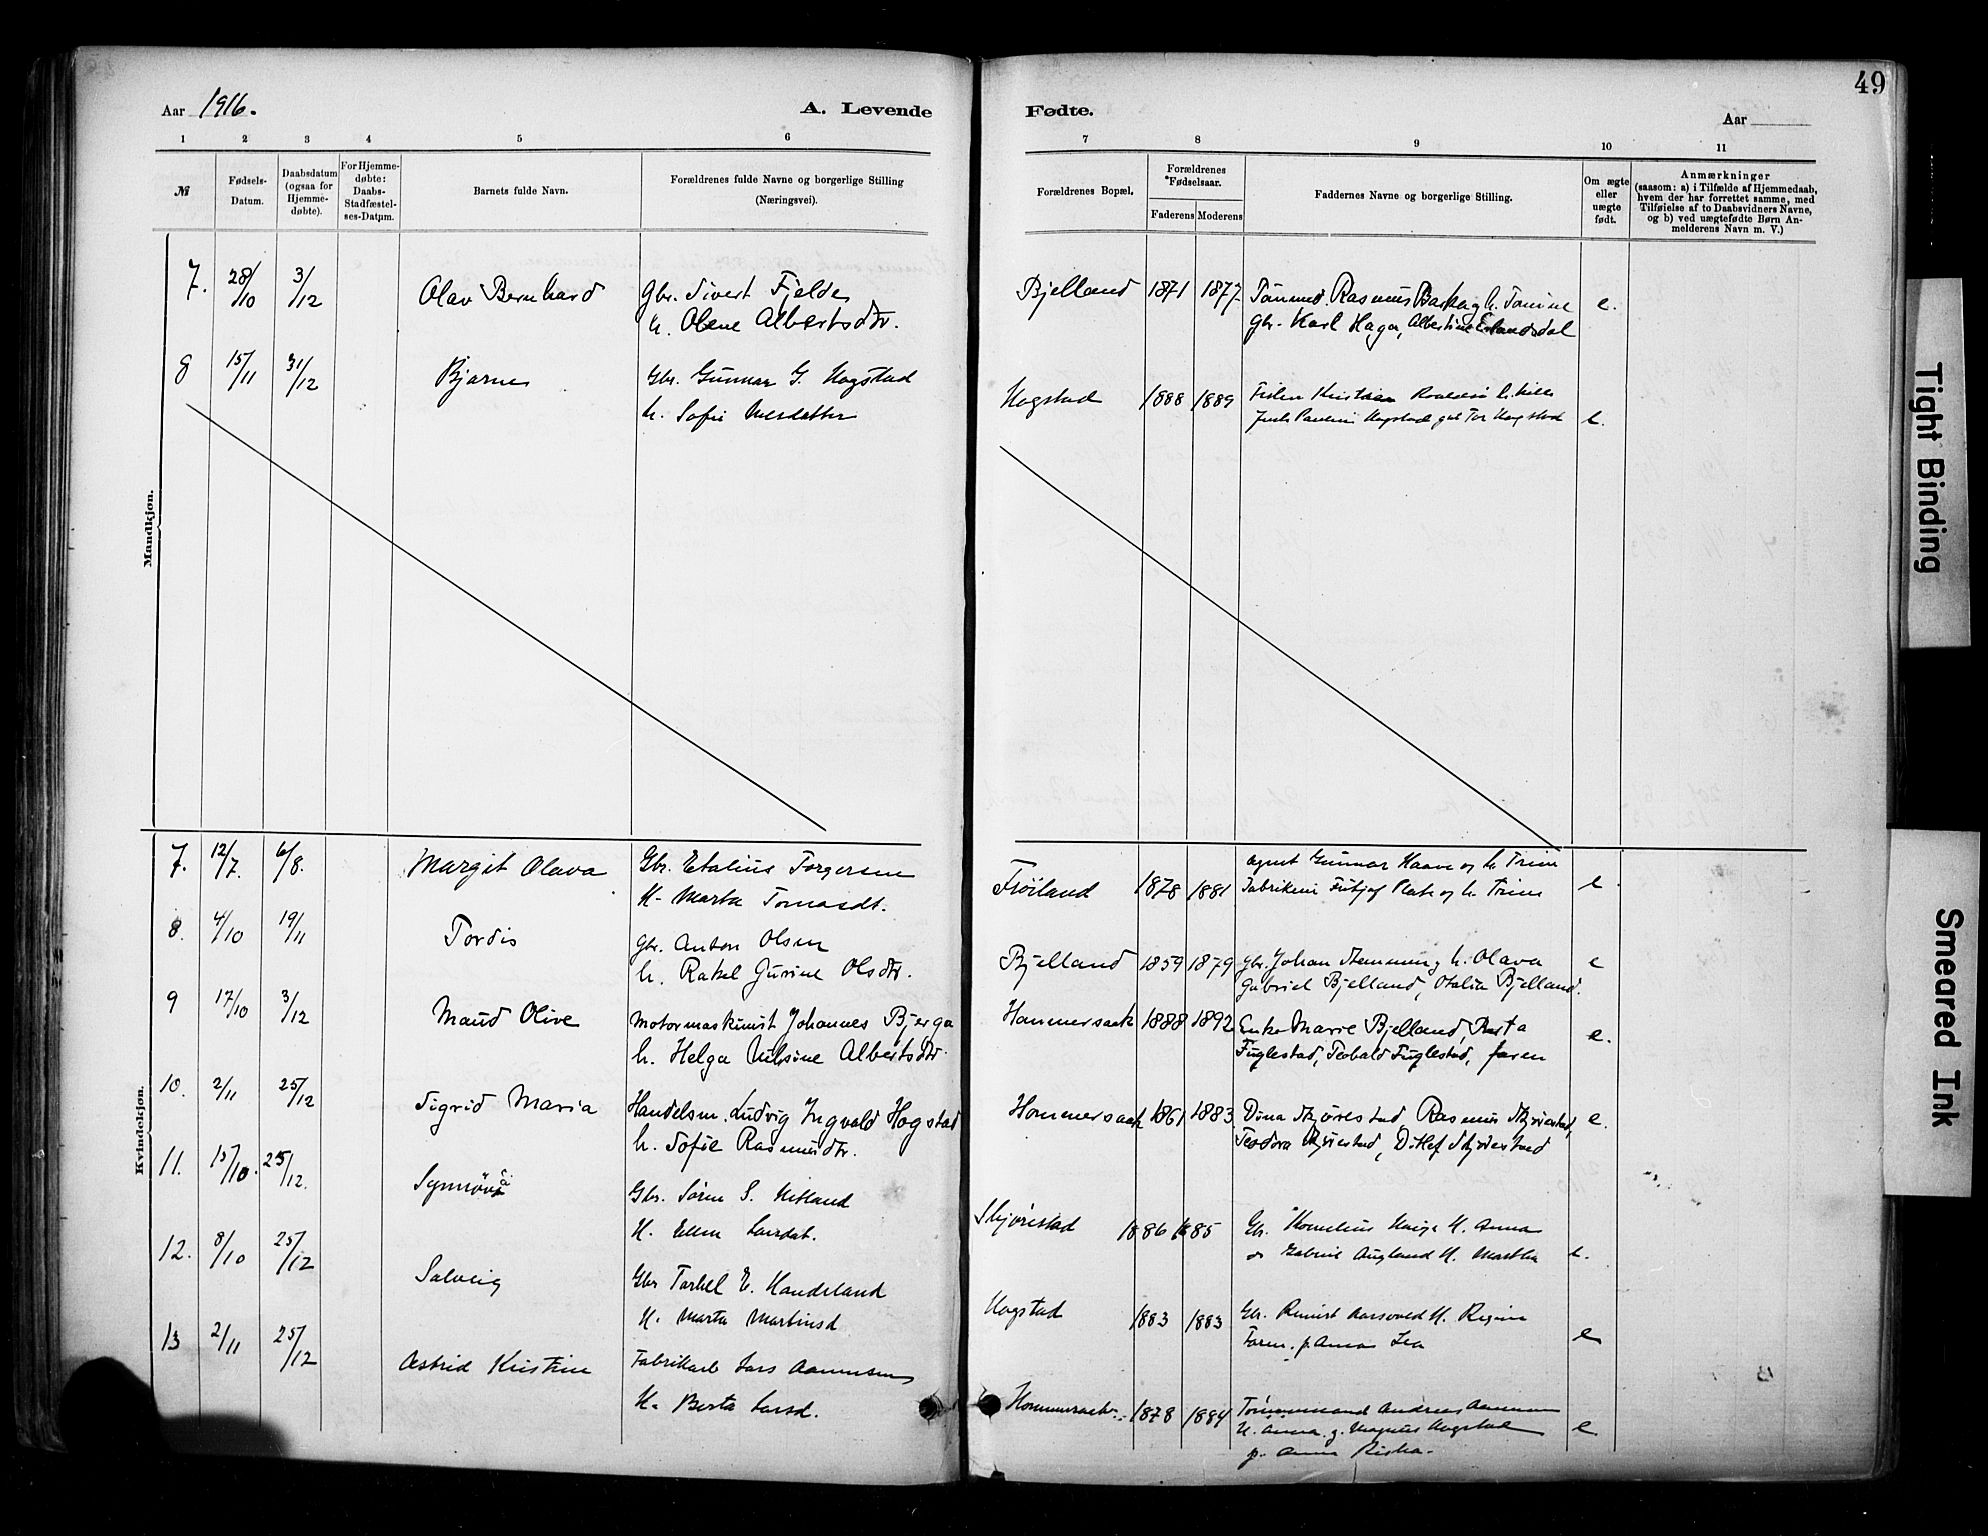 49
Aar 1916.
A. Levende
Fødte.
Aar
1 2 3 4 5 6
7 8 9 10 11
№
Fødsels-
Datum.
Daabsdatum
(ogsaa for
Hjemme-
døbte).
For Hjemme-
døbte:
Daabs-
Stadfæstel-
ses-Datum.
Barnets fulde Navn.
Forældrenes fulde Navne og borgerlige Stilling
(Næringsvei).
Forældrenes Bopæl.
Forældrenes
*Fødselsaar.
Faderens Moderens
Faddernes Navne og borgerlige Stilling.
Om ægte
eller
uægte
født.
Anmærkninger
(saasom: a) i Tilfælde af Hjemmedaab,
hvem der har forrettet samme, med
Tilføielse af to Daabsvidners Navne,
og b) ved uægtefødte Børn An-
melderens Navn m. V.)
Mandkjøn.
7. 28/10 3/12 Olav Bernhard Gbr. Sivert Fjelde Bjelland 1871 1877 Rasmus h. Tomine e.
h. Olene Albertsdtr. Gbr. Karl Haga, Albertine
8 15/11 31/12 Bjarne Gbr. Gunnar G. Hogstad Hogstad 1888 1889 Kristian
h. Sofie Hogstad Tor Hogstad e.
Kvindekjøn.
7. 12/7. 6/8. Margit Olava Gbr. Etalius Torgersen Frøiland 1878 1881 agent Gunnar Haave og h. Trine e
H. Marta Tomasdt. og h. Trine
8. 4/10 19/11 Tordis Gbr. Anton Olsen Bjelland 1859 1879 Gbr. Johan h. Olava e
h. Rakel Gurine Olsdtr. Gabriel Bjelland, Otalia Bjelland.
9 17/10 3/12 Maud Olive Motormaskinist Johannes Bjerga Hommersaak 1888 1892 Enke Marie Bjelland, Berta e.
h. Helga Nilsine Albertsdtr. Fuglestad, Teobald Fuglestad, faren
10. 2/11 25/12 Sigrid Maria Handelsm. Ludvig Ingvald Hogstad Hommersaak 1861 1883 Dina Skjørestad, Rasmus Skjørestad, e.
h. Sofie Rasmusdtr. Teodora Skjørestad, Ditlef Skjørestad
11. 15/10. 25/12. Synnøva Gbr. Søren S. Skjørestad 1886 1885 Gbr. Kornelius H. Anna
H. Ellen Larsdat. Gabriel H. Martha e.
12. 8/10 25/12 Solveig Gbr Torkel E. Handeland Hogstad 1883 1883 Gbr. H. Regine
H. Marta Martinsd p. Anna e
13 2/11 25/12 Astrid Kristine Fabrikarb Lars Hommersaak 1878 1884 Tømmermand Andreas e
H. Berta Larsd. H. Anna. g. Magnus Hogstad
p. Anna
Tight Binding
Smeared Ink